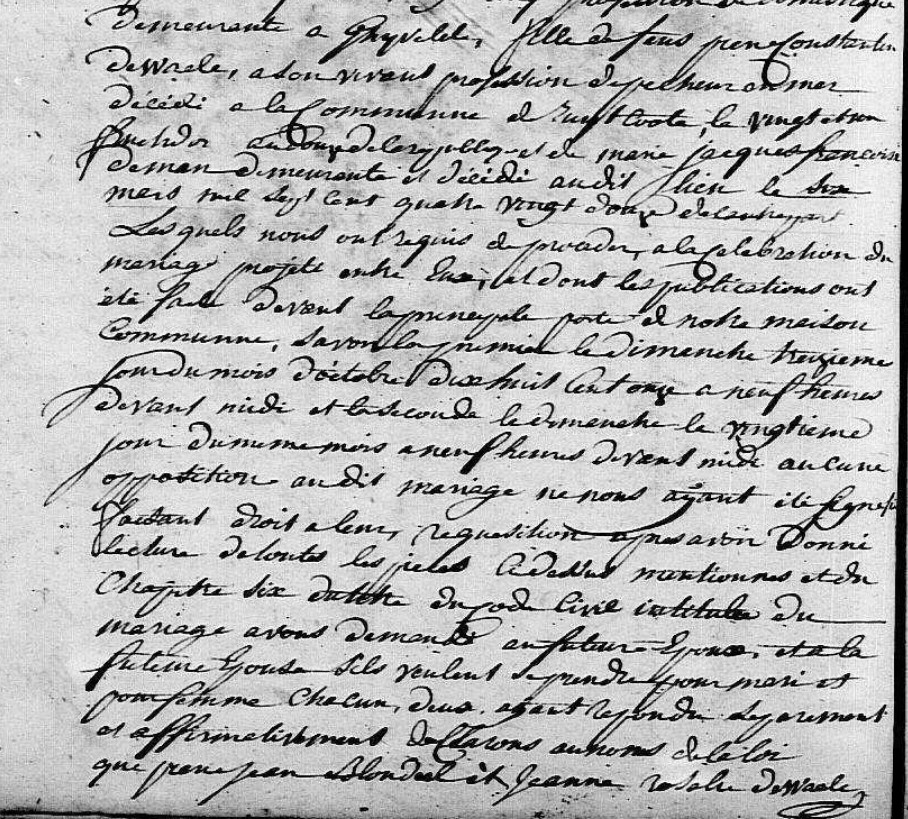 profession de
demeurante a Ghyvelde, fille de feus piere Constantin
deWaele, a son vivant profession de pecheur en mer
décédé a la Commune de ZuytCoote, le vingt et un
andouze de la republiq. et de marie jacques francoise
deman demeurante et décédé au dit lieu le six
mars mil sept Cent quatre vingt douze de l'autre part
Lesquels nous ont requis de proceder, a la Celebration du
mariage projeté entre Eux, et dont les publications ont
été faite devant la principale porte de notre maison
Commune, savoir la premier le dimanche treizieme
jour du mois d'octobre dix huit Cent onze a neuf heures
devant midi et la seconde le dimanche le vingtieme
jour du meme mois a neuf heures devant midi aucune
opposition au dit mariage ne nous ayant été signifi
faisant droit a leur, requesition apres avoir Donné
lecture de toutes les pieces Cidessus mentionnes et du
Chapitre six du titre du Code Civil intitule du
mariage avons demandé au future Epoux, et a la
future Epouse s'ils veulent se prendre pour mari et
pour femme Chacun, deux ayant repondu separement
et affirmativement declarons au noms de la loi
que piere jean Blondeel et Jeanne rosalie deWaele